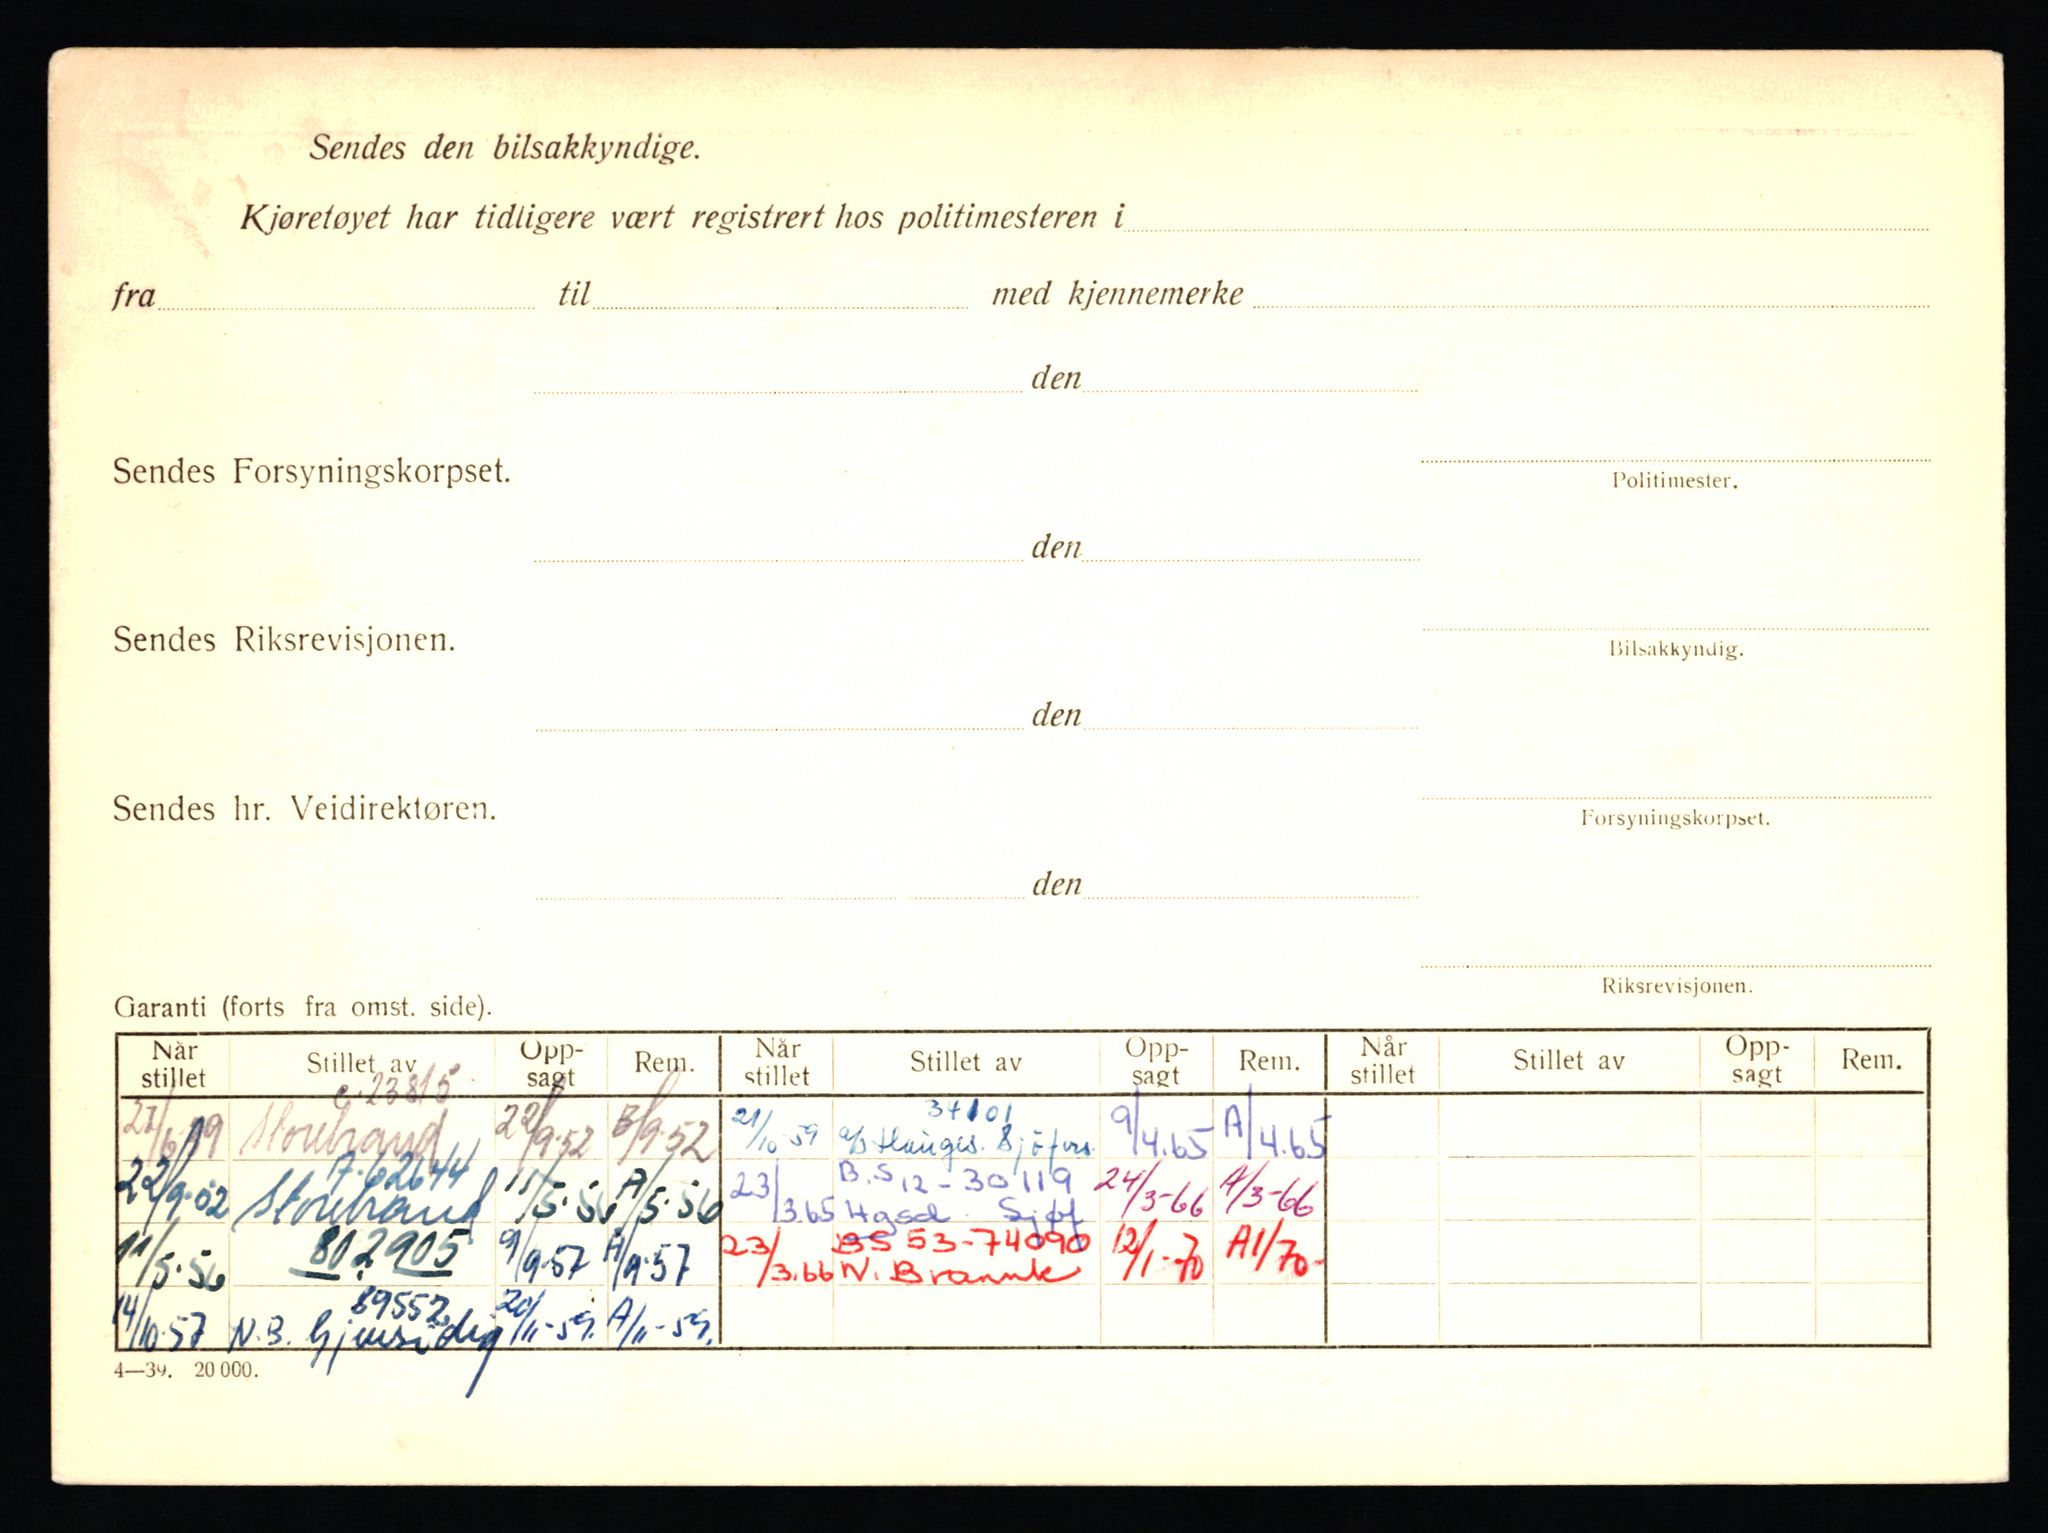 Sendes den bilsakkyndige.
Kjøretøyet har tidligere vært registrert hos politimesteren i
fra til med kjennemerke
den
Politimester.
Sendes Forsyningskorpset.
den
Bilsakkyndig.
Sendes Riksrevisjonen.
den
Forsyningskorpset.
Sendes hr. Veidirektøren.
den
Riksrevisjonen.
Garanti (forts fra omst. side).
Når stillet Stillet av Opp-sagt Rem. Når stillet Stillet av Opp-sagt Rem. Når stillet Stillet av Opp-sagt Rem.
c. 23815
Storebrand 22/9.52 B/9.52
A.62644
22/9.52 Storebrand 11/5.56 A/5.56
11/5.56 802905 9/9.57 A/9.57
89552
14/10.57 N.B. Gjensidig 20/11-59. A/11-59.
34101
21/10.59 a/s Hauges. Sjøfors. 9/4.65 A/4.65
B.S 12-30119
23/3.65 Hgsd. Sjøf 24/3-66 A/3-66
BS 53-74090
23/3.66 N. Brannk 12/1-70 A1/70-
4—39. 20 000.